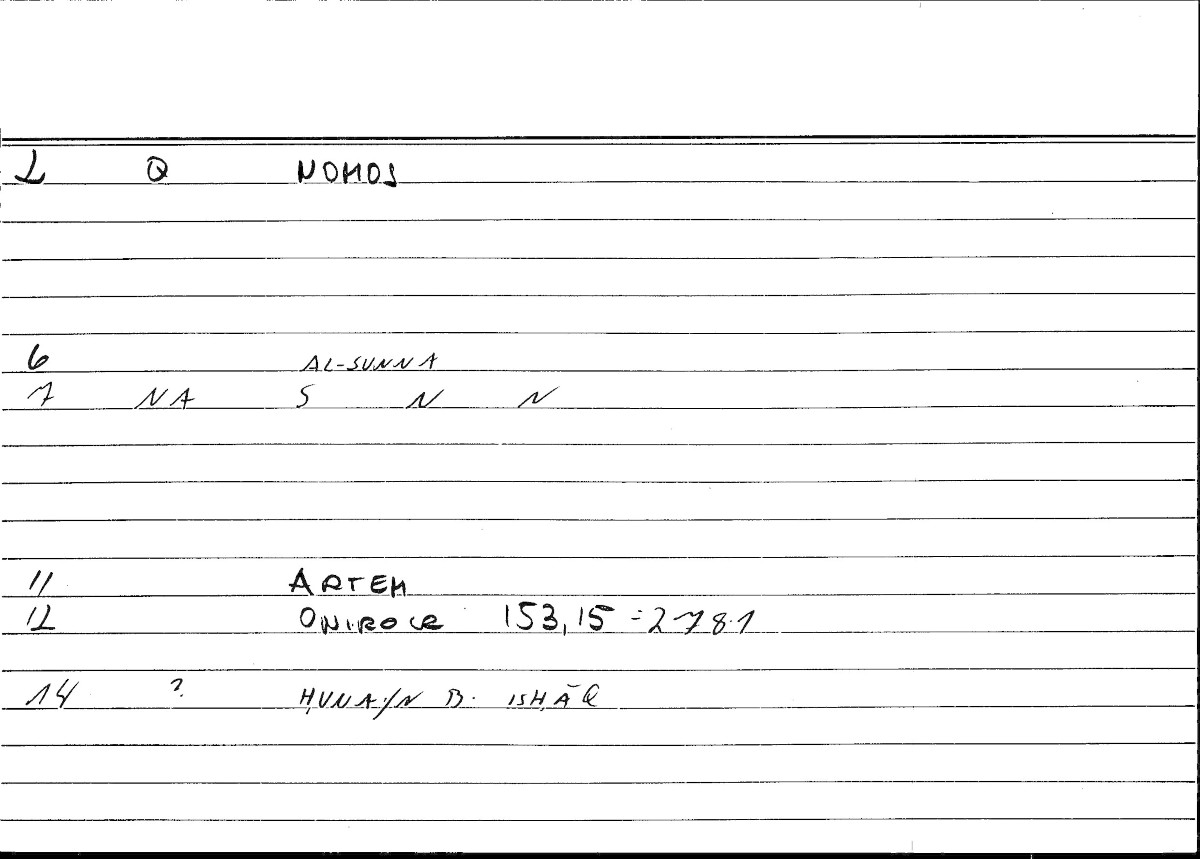 2 Q NOMOS
6 AL-SUNNA
7 NA S N N
11 ARTEM
12 ONIROCR 153,15 = 278.1
14 ? ḤUNAIN B. ISḤĀQ